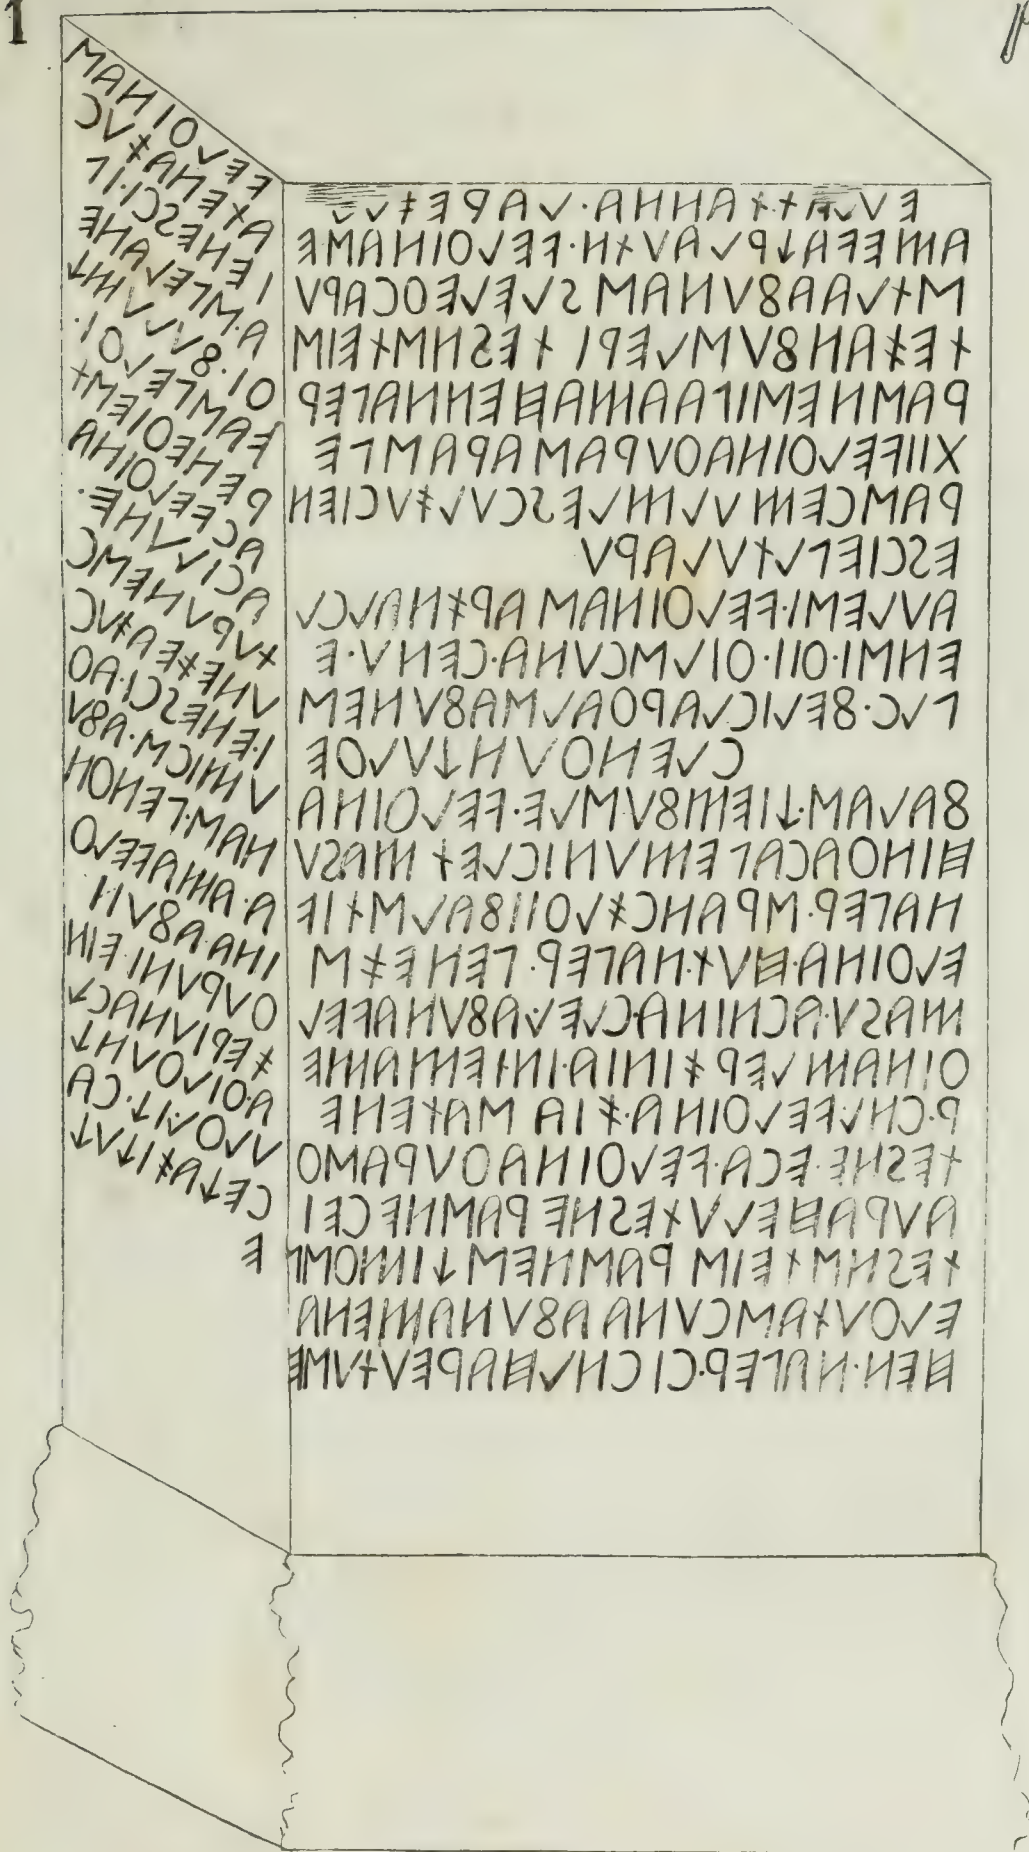 𐌄𐌖𐌋𐌀𐌕·𐌕𐌀𐌍𐌍𐌀·𐌋𐌀𐌓𐌄𐌆𐌖𐌋
𐌀𐌌𐌄𐌅𐌀𐌙𐌓𐌋𐌀𐌖𐌕𐌍·𐌅𐌄𐌋𐌈𐌉𐌍𐌀𐌑𐌄
𐌑𐌕𐌋𐌀𐌀𐌚𐌖𐌍𐌀𐌑 𐌔𐌋𐌄𐌋𐌄𐌈𐌂𐌀𐌓𐌖
𐌕𐌄𐌆𐌀𐌍𐌚𐌖𐌑𐌋𐌄𐌓𐌉 𐌕𐌄𐌔𐌍𐌑𐌕𐌄𐌉𐌑
𐌓𐌀𐌑𐌍𐌄𐌑𐌉𐌐𐌀𐌀𐌌𐌀𐌇𐌄𐌍𐌍𐌀𐌐𐌄𐌓
𐌢𐌉𐌉𐌅𐌄𐌋𐌈𐌉𐌍𐌀𐌈𐌖𐌓𐌀𐌑 𐌀𐌓𐌀𐌑𐌐𐌄
𐌓𐌀𐌑𐌂𐌄𐌌𐌖𐌋𐌌𐌋𐌄𐌔𐌂𐌖𐌋𐌆𐌖𐌂𐌉𐌄𐌍
𐌄𐌔𐌂𐌉𐌄𐌐𐌋𐌕𐌖𐌋𐌀𐌓𐌖
𐌀𐌖𐌋𐌄𐌑𐌉·𐌅𐌄𐌋𐌈𐌉𐌍𐌀𐌑 𐌀𐌓𐌆𐌍𐌀𐌋𐌂𐌋
𐌄𐌍𐌑𐌉·𐌈𐌉𐌉·𐌈𐌉𐌋𐌑𐌂𐌖𐌍𐌀·𐌂𐌄𐌍𐌖·𐌄
𐌐𐌋𐌂·𐌚𐌄𐌋𐌉𐌂𐌋𐌀𐌓𐌈𐌀𐌋𐌑𐌀𐌚𐌖𐌍𐌄𐌑
𐌂𐌋𐌄𐌍𐌈𐌖𐌍𐌙𐌖𐌋𐌈𐌄
𐌚𐌀𐌋𐌀𐌑·𐌙𐌉𐌄𐌌𐌚𐌖𐌑𐌋𐌄·𐌅𐌄𐌋𐌈𐌉𐌍𐌀
𐌇𐌉𐌍𐌈𐌀𐌂𐌀𐌐𐌄𐌌𐌖𐌍𐌉𐌂𐌋𐌄𐌕 𐌌𐌀𐌔𐌖
𐌍𐌀𐌐𐌄𐌓·𐌑𐌓𐌀𐌍𐌂𐌆𐌋𐌈𐌉𐌉𐌚𐌀𐌋𐌑𐌕𐌉𐌅
𐌄𐌋𐌈𐌉𐌍𐌀·𐌇𐌖𐌕·𐌍𐌀𐌐𐌄𐌓·𐌐𐌄𐌍𐌄𐌆𐌑
𐌌𐌀𐌔𐌖·𐌀𐌂𐌍𐌉𐌍𐌀·𐌂𐌋𐌄𐌋·𐌀𐌚𐌖𐌍𐌀𐌅𐌄𐌋
𐌈𐌉𐌍𐌀𐌌𐌋𐌄𐌓𐌆𐌉𐌍𐌉𐌀·𐌉𐌍𐌕𐌄𐌌𐌀𐌌𐌄
𐌓·𐌂𐌍𐌋·𐌅𐌄𐌋𐌈𐌉𐌍𐌀·𐌆𐌉𐌀 𐌑𐌀𐌕𐌄𐌍𐌄
𐌕𐌄𐌔𐌍𐌄·𐌄𐌂𐌀·𐌅𐌄𐌋𐌈𐌉𐌍𐌀𐌈𐌖𐌓𐌀𐌑𐌈
𐌀𐌖𐌓𐌀𐌇𐌄𐌋𐌖𐌕𐌄𐌔𐌍𐌄 𐌓𐌀𐌑𐌍𐌄𐌂𐌄𐌉
𐌕𐌄𐌔𐌍𐌑𐌕𐌄𐌉𐌑 𐌓𐌀𐌑𐌍𐌄𐌑𐌙𐌉𐌌𐌈𐌑𐌐
𐌄𐌋𐌈𐌖𐌕𐌀𐌑𐌂𐌖𐌍𐌀 𐌀𐌚𐌖𐌍𐌀𐌌𐌄𐌍𐌀
𐌇𐌄𐌍·𐌍𐌀𐌐𐌄𐌓·𐌂𐌉𐌂𐌍𐌋𐌇𐌀𐌓𐌄𐌖𐌕𐌖𐌑𐌄
𐌅𐌄𐌋𐌈𐌉𐌍𐌀𐌑
𐌀𐌕𐌄𐌍𐌀𐌆𐌖𐌂
𐌉𐌄𐌍𐌄𐌔𐌂𐌉·𐌉𐌐
𐌀·𐌑𐌐𐌄𐌋𐌀𐌍𐌄
𐌈𐌉·𐌚𐌖𐌋𐌖𐌌𐌙
𐌅𐌀𐌑𐌐𐌄𐌋𐌈𐌉·
𐌓𐌄𐌍𐌄𐌈𐌉𐌄𐌑𐌕
𐌀𐌂𐌅𐌄𐌋𐌈𐌉𐌍𐌀
𐌀𐌂𐌉𐌋𐌖𐌍𐌄·
𐌕𐌖𐌓𐌖𐌍𐌄𐌑𐌂
𐌖𐌍𐌄𐌆𐌄𐌀𐌆𐌖𐌂
𐌉·𐌄𐌍𐌄𐌔𐌂𐌉·𐌀𐌈
𐌖𐌌𐌉𐌂𐌑·𐌀𐌚𐌖
𐌍𐌀𐌑·𐌐𐌄𐌍𐌈𐌍
𐌀·𐌀𐌌𐌀𐌅𐌄𐌋𐌈
𐌉𐌍𐌀·𐌀𐌚𐌖𐌍
𐌈𐌖𐌓𐌖𐌍𐌉·𐌄𐌉𐌍
𐌆𐌄𐌓𐌉𐌖𐌍𐌀𐌂𐌋
𐌀·𐌈𐌉𐌋𐌈𐌖𐌍𐌙
𐌖𐌋𐌈𐌋·𐌉𐌙·𐌂𐌀
𐌂𐌄𐌙𐌀𐌆𐌉𐌙𐌖𐌙
𐌄